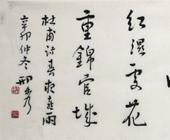 红湿处花
重锦官城
杜甫诗春夜喜雨
辛卯仲冬